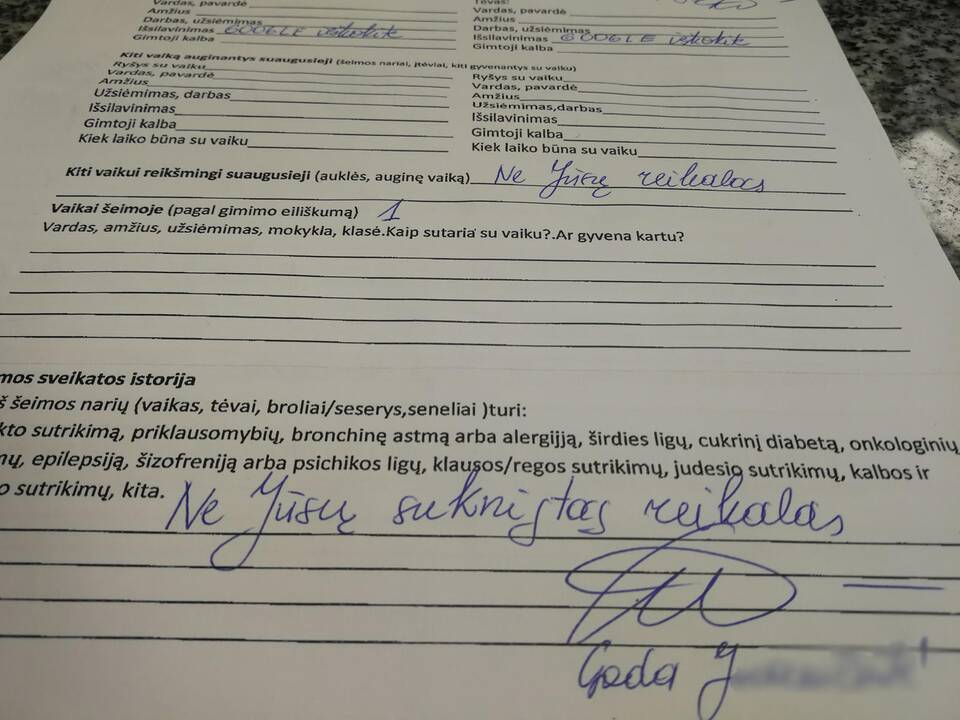 Vardas, pavardė
Amžius
Darbas, užsiėmimas
Išsilavinimas GOOGLE ieškokit
Gimtoji kalba
Tėvas:
Vardas, pavardė
Amžius
Darbas, užsiėmimas
Išsilavinimas GOOGLE ieškokit
Gimtoji kalba
Kiti vaiką auginantys suaugusieji (šeimos nariai, įtėviai, kiti gyvenantys su vaiku)
Ryšys su vaiku
Vardas, pavardė
Amžius
Užsiėmimas, darbas
Išsilavinimas
Gimtoji kalba
Kiek laiko būna su vaiku
Ryšys su vaiku
Vardas, pavardė
Amžius
Užsiėmimas,darbas
Išsilavinimas
Gimtoji kalba
Kiek laiko būna su vaiku
Kiti vaikui reikšmingi suaugusieji (auklės, auginę vaiką) Ne Jūsų reikalas
Vaikai šeimoje (pagal gimimo eiliškumą) 1
Vardas, amžius, užsiėmimas, mokykla, klasė.Kaip sutaria su vaiku?.Ar gyvena kartu?
mos sveikatos istorija
š šeimos narių (vaikas, tėvai, broliai/seserys,seneliai )turi:
kto sutrikimą, priklausomybių, bronchinę astmą arba alergijją, širdies ligų, cukrinį diabetą, onkologinių
nų, epilepsiją, šizofreniją arba psichikos ligų, klausos/regos sutrikimų, judesio sutrikimų, kalbos ir
o sutrikimų, kita.
Ne Jūsų suknistas reikalas
Goda J